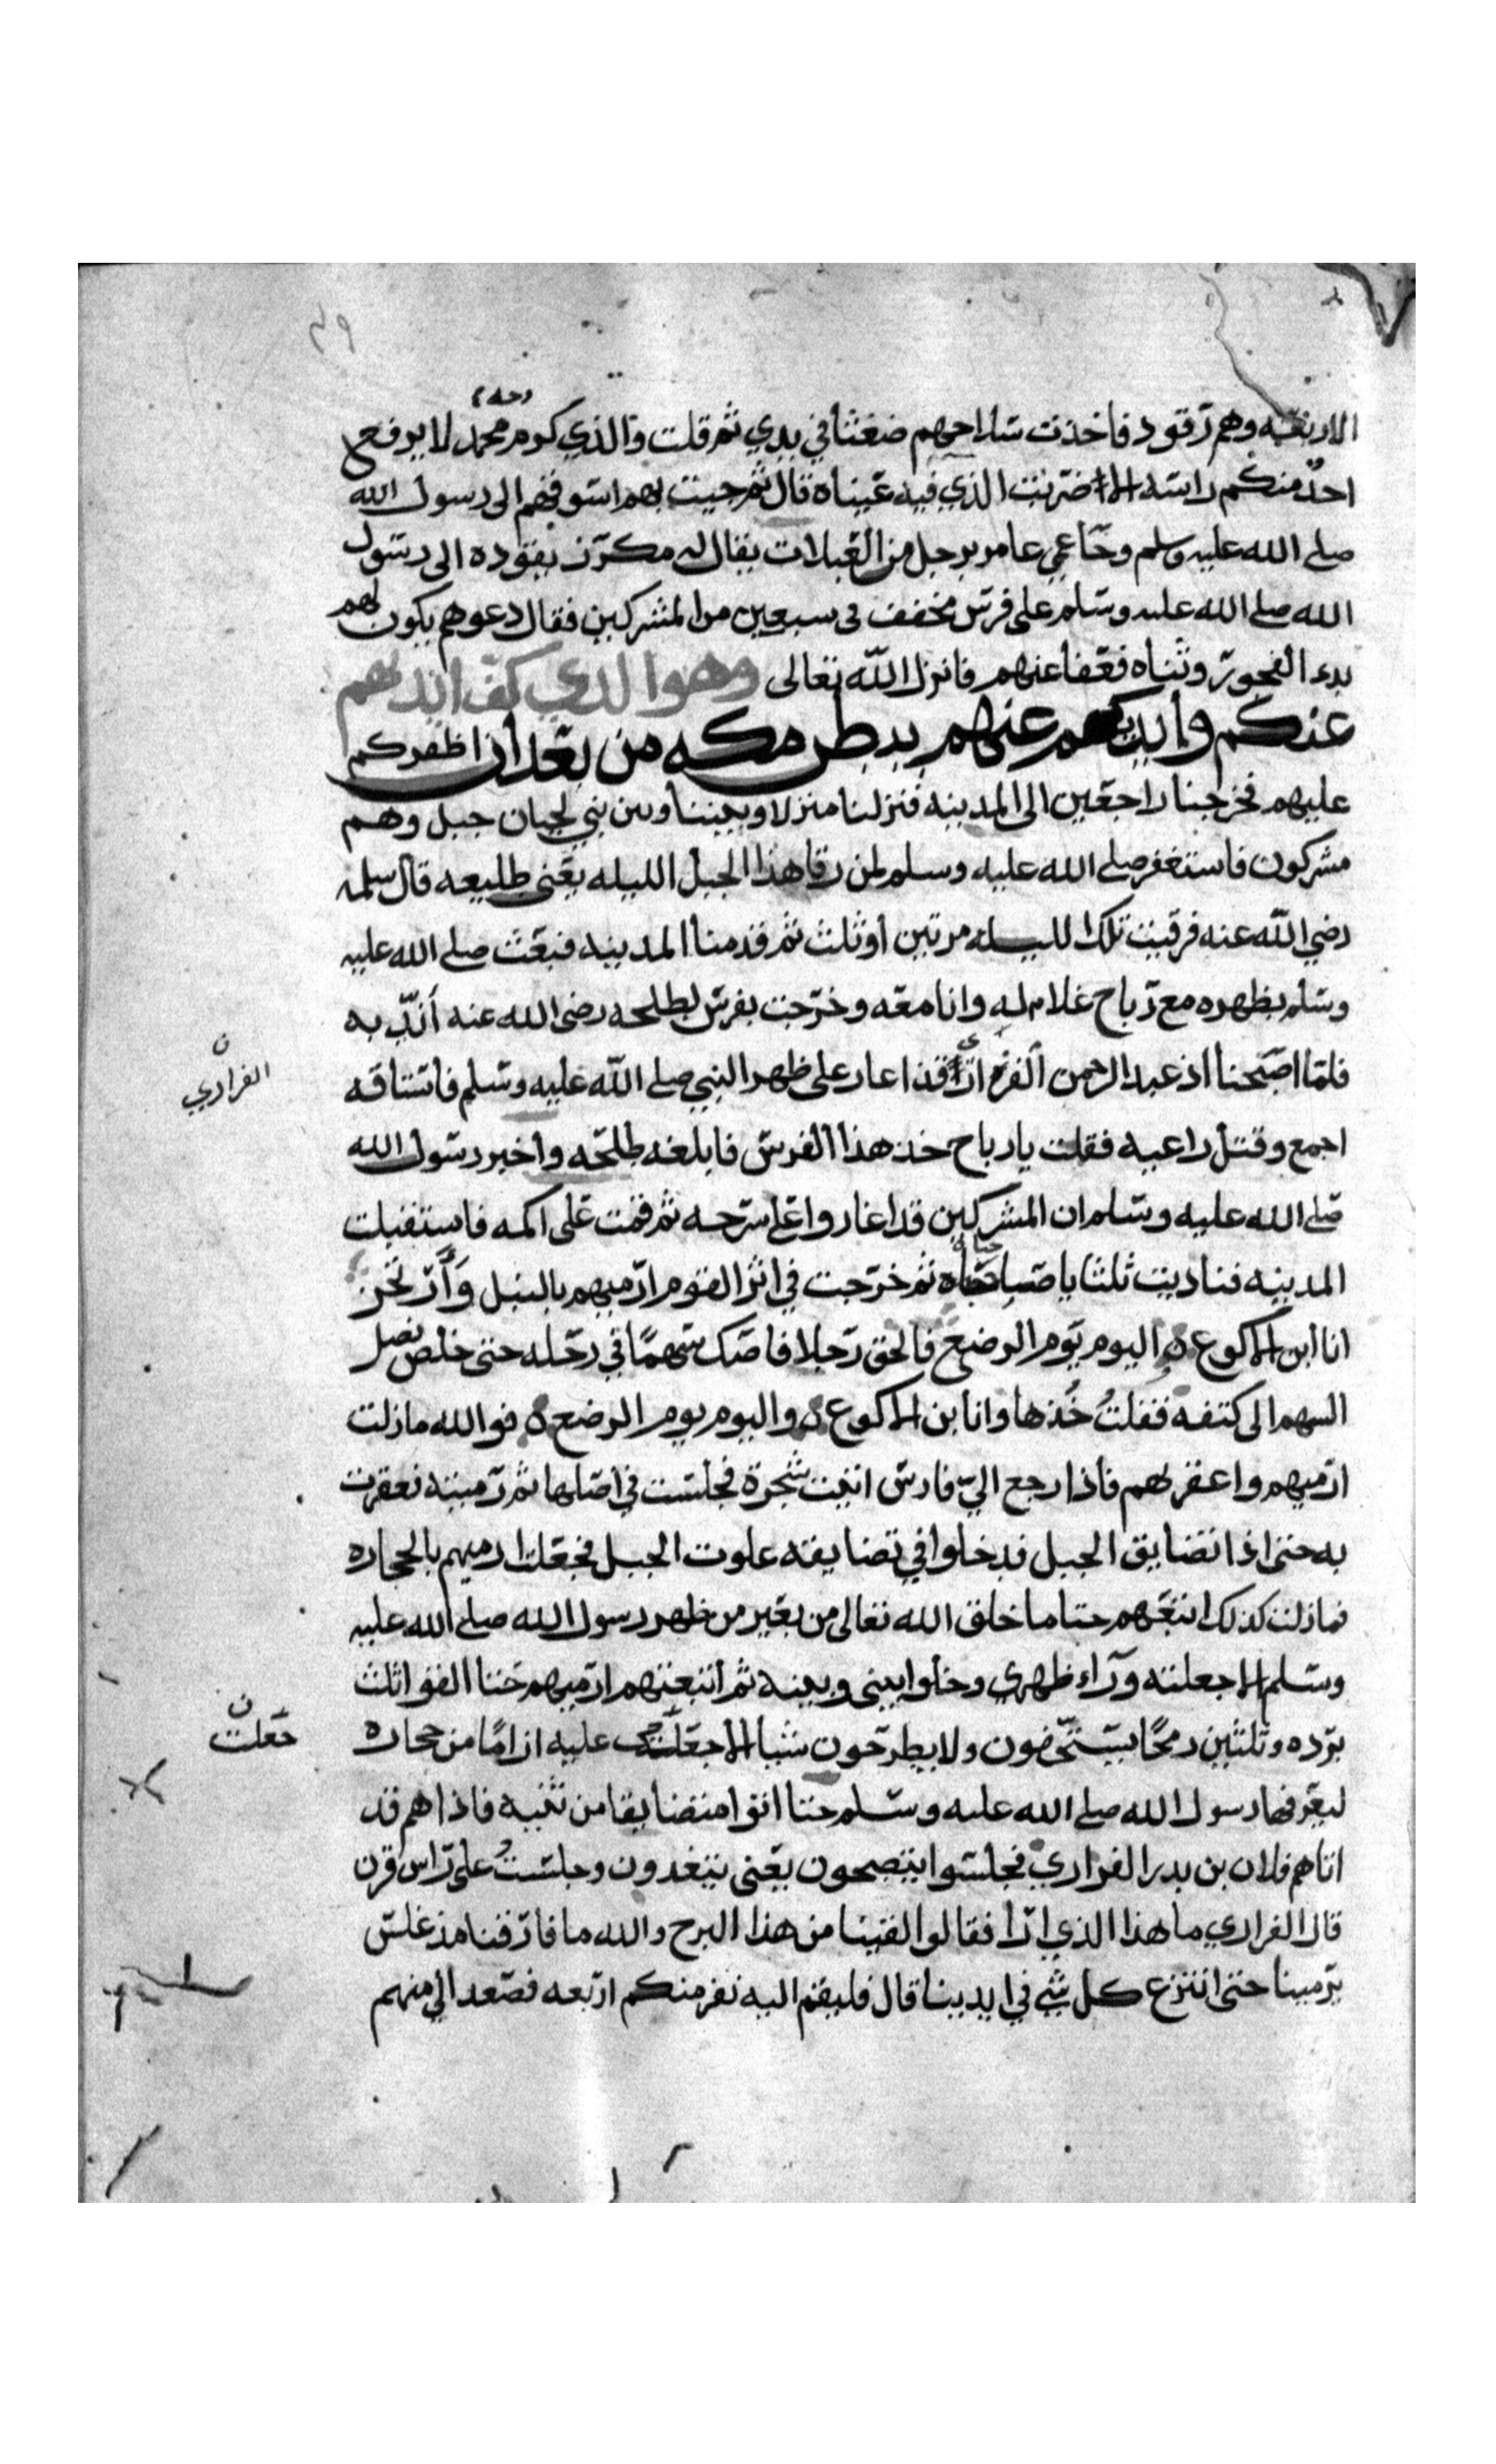 ٣٩
وجه
الاربعه وهم رقود فاخذت سلاحهم ضغثا في يدي ثم قلت والذي كرم محمد لا يرفع
احد منكم راسه الا ضربت الذي فيه عيناه قال ثم جيت بهم اسوقهم الى رسول الله
صلى الله عليه وسلم وجا عمي عامر برجل من العبلات يقال له مكرز يقوده الى رسول
الله صلى الله عليه وسلم على فرس مخفف في سبعين من المشركين فقال دعوهم يكون لهم
بدء الفجور وثناه فعفا عنهم فانزل الله تعالى وهو الذي كف ايديهم
عنكم وايديكم عنهم ببطن مكه من بعد ان اظفركم
عليهم فخرجنا راجعين الى المدينه فنزلنا منزلا وبيننا وبين بني لحيان جبل وهم
مشركون فاستغفر صلى الله عليه وسلم لمن رقا هذا الجبل الليله يعني طليعه قال سلمه
رضي الله عنه فرقيت تلك الليله مرتين او ثلث ثم قدمنا المدينه فبعث صلى الله عليه
وسلم بظهره مع رباح غلام له وانا معه وخرجت بفرس لطلحه رضي الله عنه اندبه
فلما اصبحنا اذ عبد الرحمن الفزاري قد اغار على ظهر النبي صلى الله عليه وسلم فاستاقه
ن
الفزاري
اجمع وقتل راعيه فقلت يا رباح خذ هذا الفرس فابلغه طلحه واخبر رسول الله
صلى الله عليه وسلم ان المشركين قد اغاروا على سرحه ثم قمت على اكمه فاستقبلت
المدينه فناديت ثلثا يا صباحاه ثم خرجت في اثر القوم ارميهم بالنبل وارتجز
انا ابن الاكوع ه واليوم يوم الرضع فالحق رجلا فاصك سهما في رحله حتى خلص نصل
السهم الى كتفه فقلت خذها وانا بن الاكوع ه واليوم يوم الرضع ه فوالله ما زلت
ارميهم واعقر لهم فاذا رجع الي فارس اتيت شجرة فجلست في اصلها ثم رميته فعقرت
به حتى اذا تضايق الجبل فدخلوا في تضايقه علوت الجبل فجعلت ارميهم بالحجاره
فما زلت كذلك اتبعهم حتا ما خلق الله تعالى من بعير من ظهر رسول الله صلى الله عليه
وسلم الا جعلته وراء ظهري وخلوا بيني وبينه ثم اتبعتهم ارميهم حتا القوا ثلث
برده وثلثين رمحا يستخفون ولا يطرحون شيا الا جعلت عليه اراما من حجاره
ن
جعلت
ليعرفها رسول الله صلى الله عليه وسلم حتا اتوا متضايقا من ثنيه فاذا هم قد
اتاهم فلان بن بدر الفزاري فجلسوا يتصحون يعني يتغدون وجلست على راس قرن
قال الفزاري ما هذا الذي ارا فقالوا لقينا من هذا البرح والله ما فارقنا مذ غلس
يرمينا حتى انتزع كل شي في ايدينا قال فليقم اليه نفر منكم اربعه فصعد الي منهم